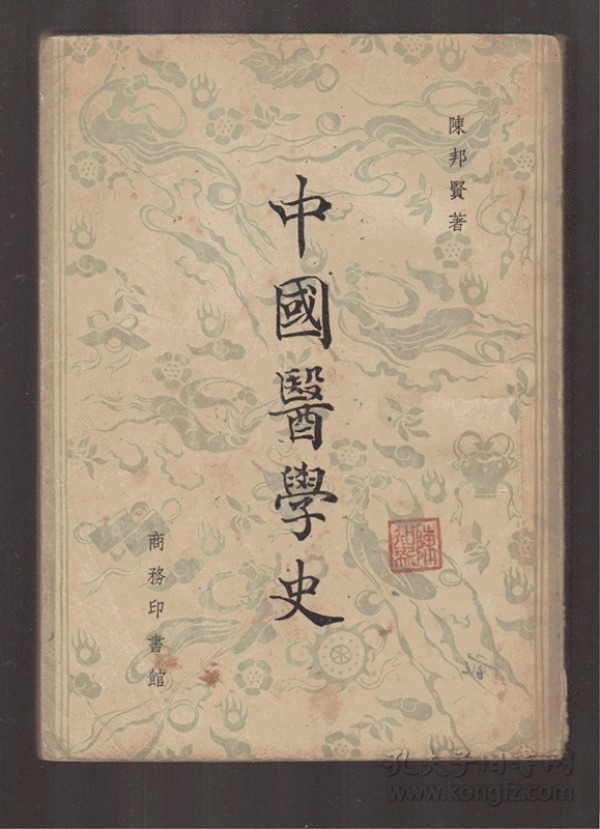 陳邦賢著
中國醫學史
商務印書館
孔夫子旧书网
www.kongfz.com